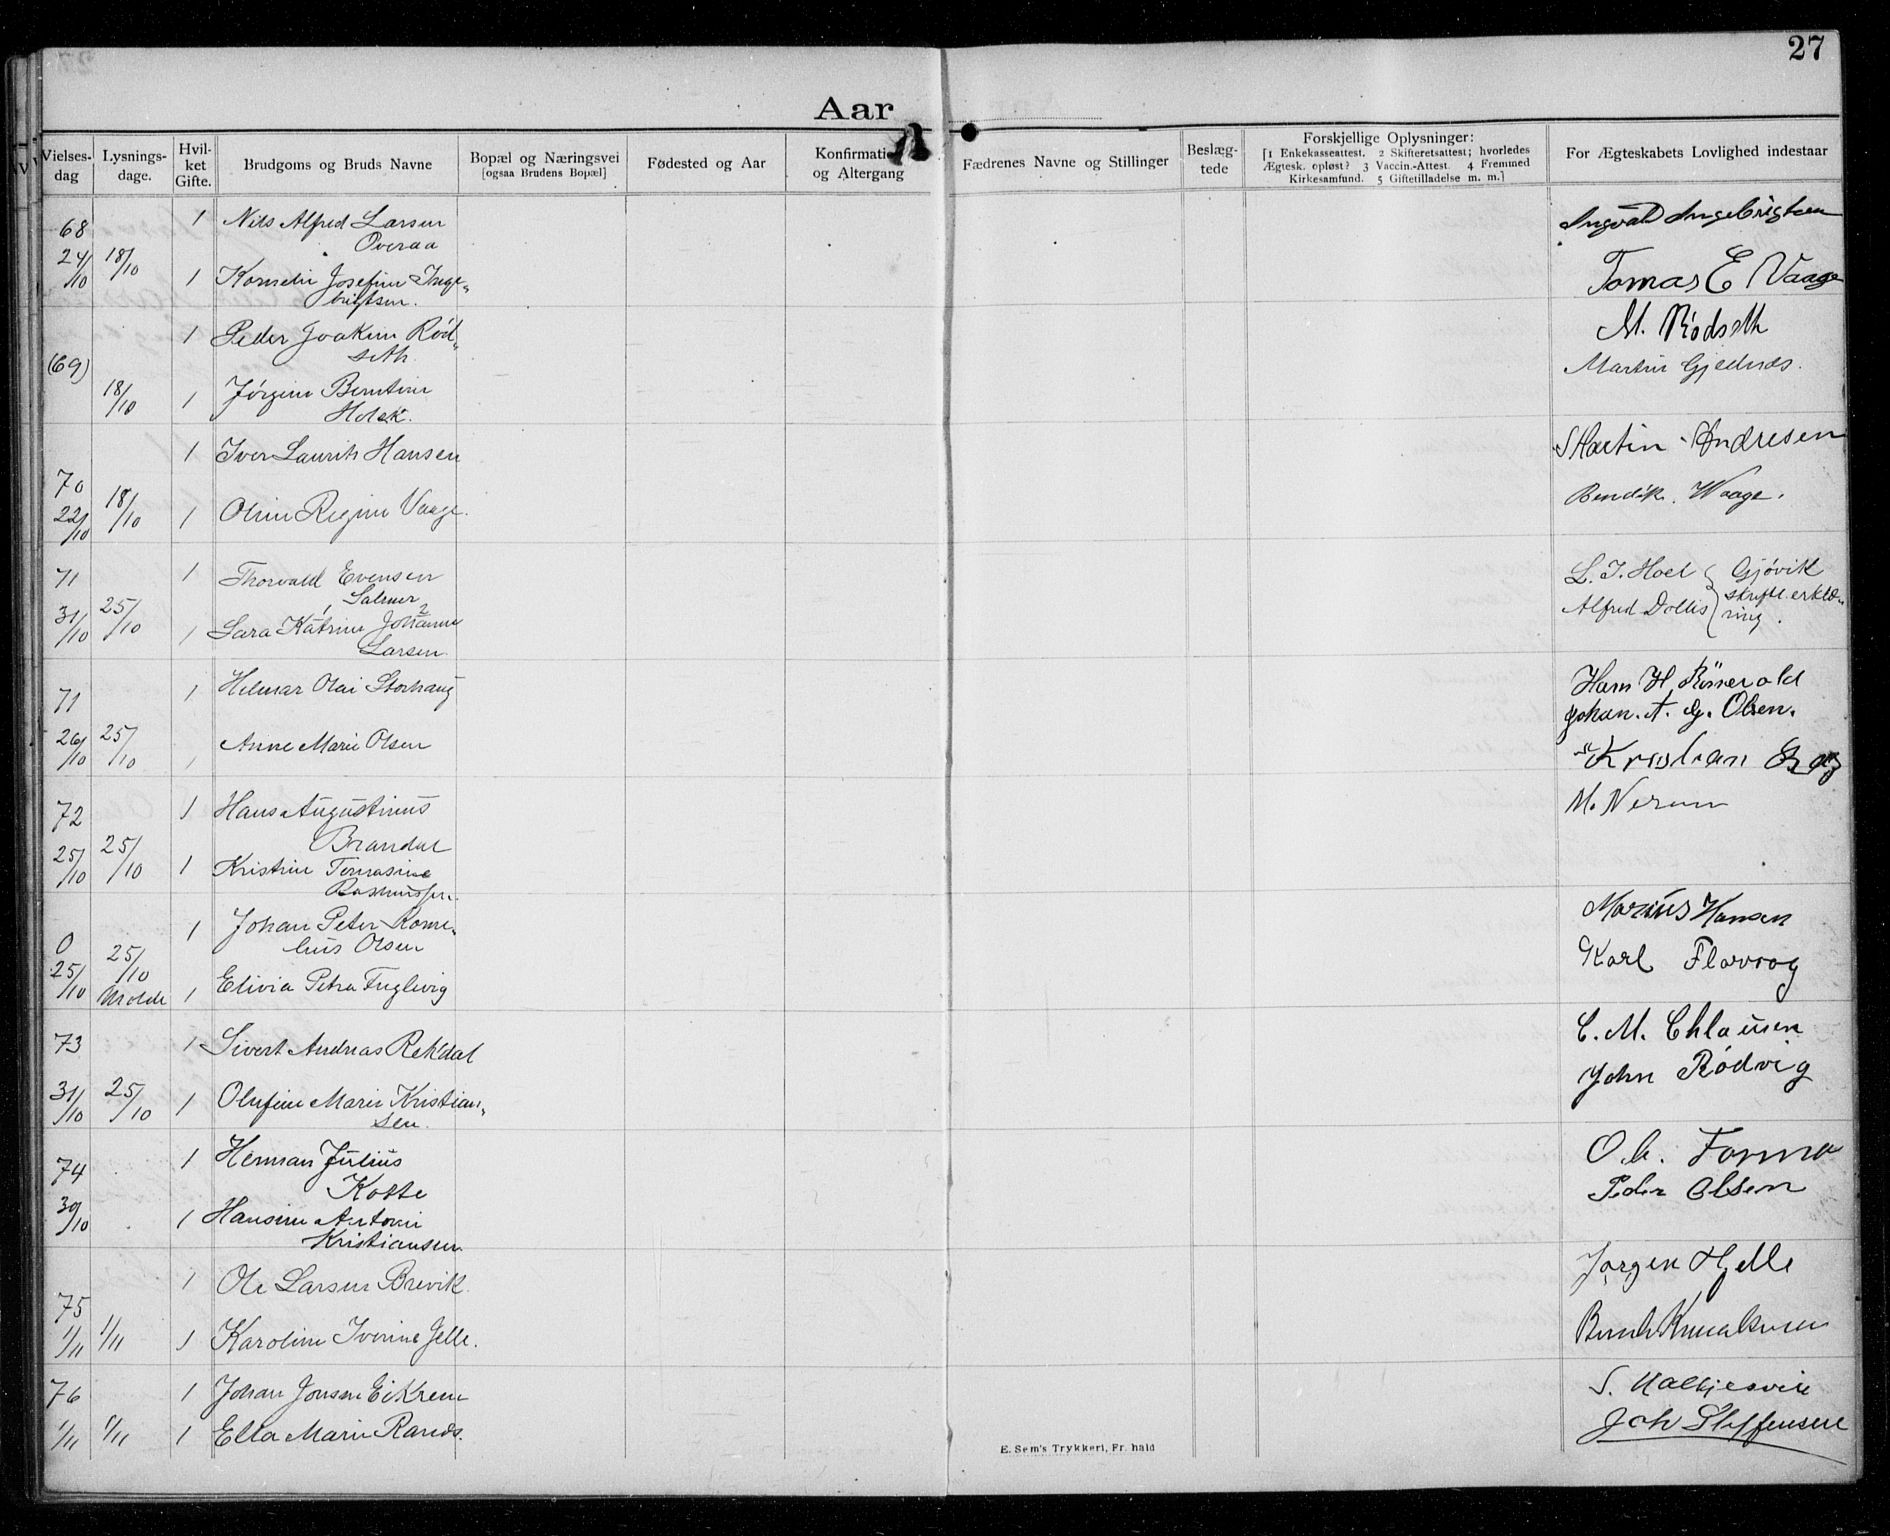 27
Aar
Vielses-
dag
Lysnings-
dage.
Hvil-
ket
Gifte.
Brudgoms og Bruds Navne
Bopæl og Næringsvei
[ogsaa Brudens Bopæl]
Fødested og Aar
Konfirmati
og Altergang
Fædrenes Navne og Stillinger
Beslæg-
tede
Forskjellige Oplysninger:
[1 Enkekasseattest. 2 Skifteretsattest; hvorledes
Ægtesk. opløst? 3 Vaccin.-Attest. 4 Fremmed
Kirkesamfund. 5 Giftetilladelse m. m.]
For Ægteskabets Lovlighed indestaar
68 1 Nils Alfred Larsen
Overaa
24/10 18/10 1 Josefine Inge„
brigtsen.
Ingvald Ingebrigtsen
Tomas E Vaage
(69) 1 Peder Joakim Rød„
seth.
18/10 1 Jørgine Berntine
Holsk.
M. Rødseth
Martin Gjednæs.
70 1 Iver Laurits Hansen
22/10 18/10 1 Oline Regine Vaage.
Martin Andresen
Bendik. Waage.
71 1 Thorvald Evensen
Salmer
31/10 25/10 1 Sara Katrine Johanne
Larsen.
L. J. Hoel Gjøvik
Alfred Dollis skriftl erklæ„
ring.
71 1 Hilmar Olai Storhaug
26/10 25/10 1 Anne Marie Olsen
Hans H.
Johan. A. G. Olsen.
72 1 Hans Augustinus
Brandal
25/10 25/10 1 Kristine Tomasine
Rasmussen.
Kristian
M. Nerum
0 1 Johan Peter Korne„
lius Olsen
25/10 25/10 Molde 1 Elivia Petra Fuglevig
Marius Hansen
Karl Flovrog
73 1 Sivert Andreas Rekdal
31/10 25/10 1 Olufine Marie Kristian„
sen.
C. M. Chlausen
John Rødvig
74 1 Herman Julius
Kotte
30/10 1 Hansine Antonie
Kristiansen.
O. A. Formo
Peder Olsen
75 1 Ole Larsen Brevik.
1/11 1/11 1 Karoline Iverine Jelle.
Jørgen Hjelle
Bernh Knudsen
76 1 Johan Jonsen Eikrem
1/11 1/11 1 Ella Marie Rands.
Joh Steffensen
E. Sem's Trykkeri, Fr. hald